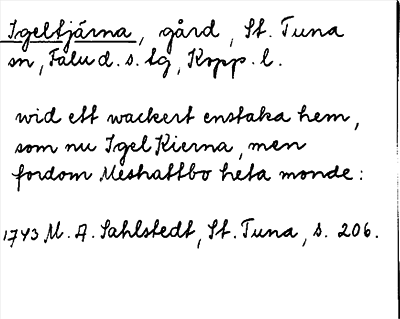 Igeltjärna, gård, St. Tuna
sn, Falu d.s. tg, Kopp. l.
wid ett wackert enstaka hem,
som nu Igel Kierna, men
fordom Meshattbo heta monde:
1743 M. A. Sahlstedt, St. Tuna, s. 206.